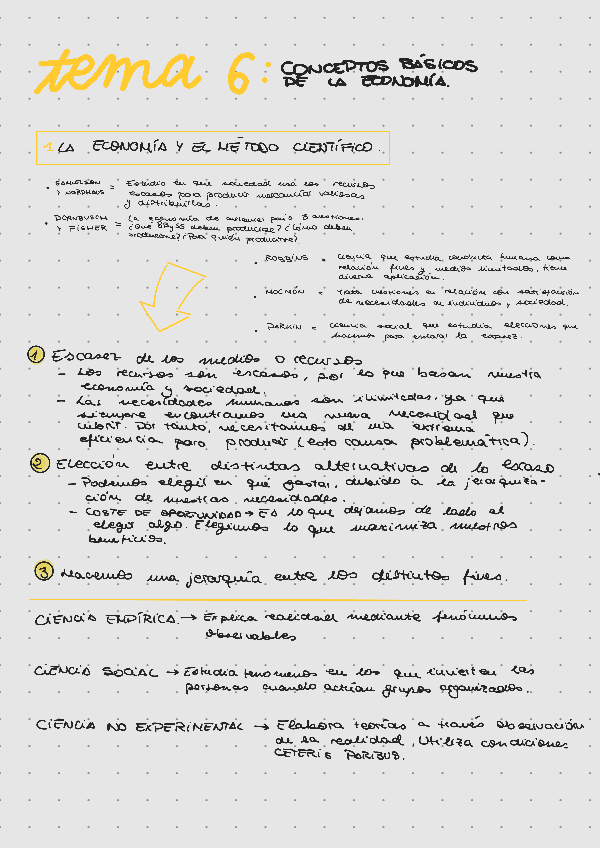 tema 6: CONCEPTOS BÁSICOS
DE LA ECONOMÍA.
1. LA ECONOMÍA Y EL MÉTODO CIENTÍFICO.
· SAMUELSON = Estudio en que sociedad usa los recursos
Y NORDHAUS escasos para producir mercancías valiosas
y distribuirlas.
· DORNBUSCH = La economía da
Y FISHER ¿Qué BBySS deben producirse? ¿Cómo deben
producirse? ¿Para quién producirse?
· ROBBINS = Ciencia que estudia conducta humana como
relación fines y medios limitados, tiene
diversa aplicación.
· MOCHÓN = Trata cuestiones en relación con satisfacción
de necesidades de individuos y sociedad.
= Ciencia social que estudia elecciones que
hacemos para la escasez.
1 Escasez de los medios o recursos
- Los recursos son escasos, por lo que basan nuestra
economía y sociedad.
- Las necesidades humanas son ilimitadas, ya que
siempre encontramos una nueva necesidad que
cubrir. Por tanto, necesitamos de una extrema
eficiencia para producir (esto causa problemática).
2 Elección entre distintas alternativas de lo escaso
- Podemos elegir en qué gastar, debido a la jerarquiza-
ción de nuestras necesidades.
- COSTE DE OPORTUNIDAD → Es lo que dejamos de lado al
elegir algo. Elegimos lo que maximiza nuestros
beneficios.
3 Hacemos una jerarquía entre los distintos fines.
CIENCIA EMPÍRICA → Explica realidad mediante fenómenos
observables
CIENCIA SOCIAL → Estudia fenómenos en los que invierten las
personas cuando actúan grupos organizados.
CIENCIA NO EXPERIMENTAL → Elabora teorías a través observación
de la realidad. Utiliza condiciones
CETERIS PARIBUS.